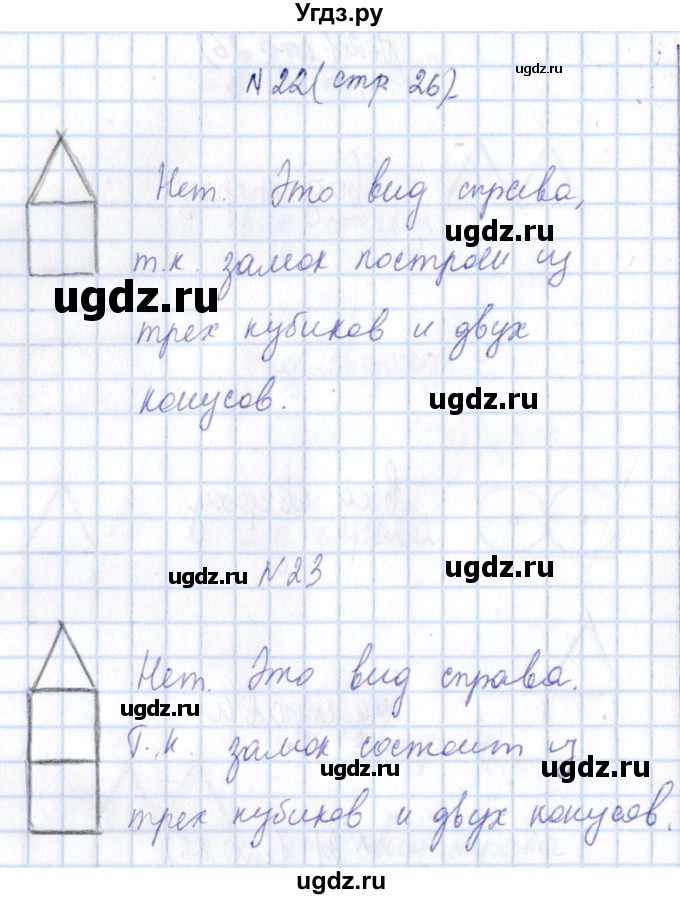 Угдз.ру
N 22 (стр 26)
ugdz.ru
Нет. Это вид справа,
ugdz.ru
т.к. замок построен из
ugdz.ru
трех кубиков и двух
конусов.
ugdz.ru
ugdz.ru
N 23
ugdz.ru
Нет. Это вид справа.
ugdz.ru
Т.к. замок состоит из
ugdz.ru
ugdz.ru
трех кубиков и двух конусов.
ugdz.ru